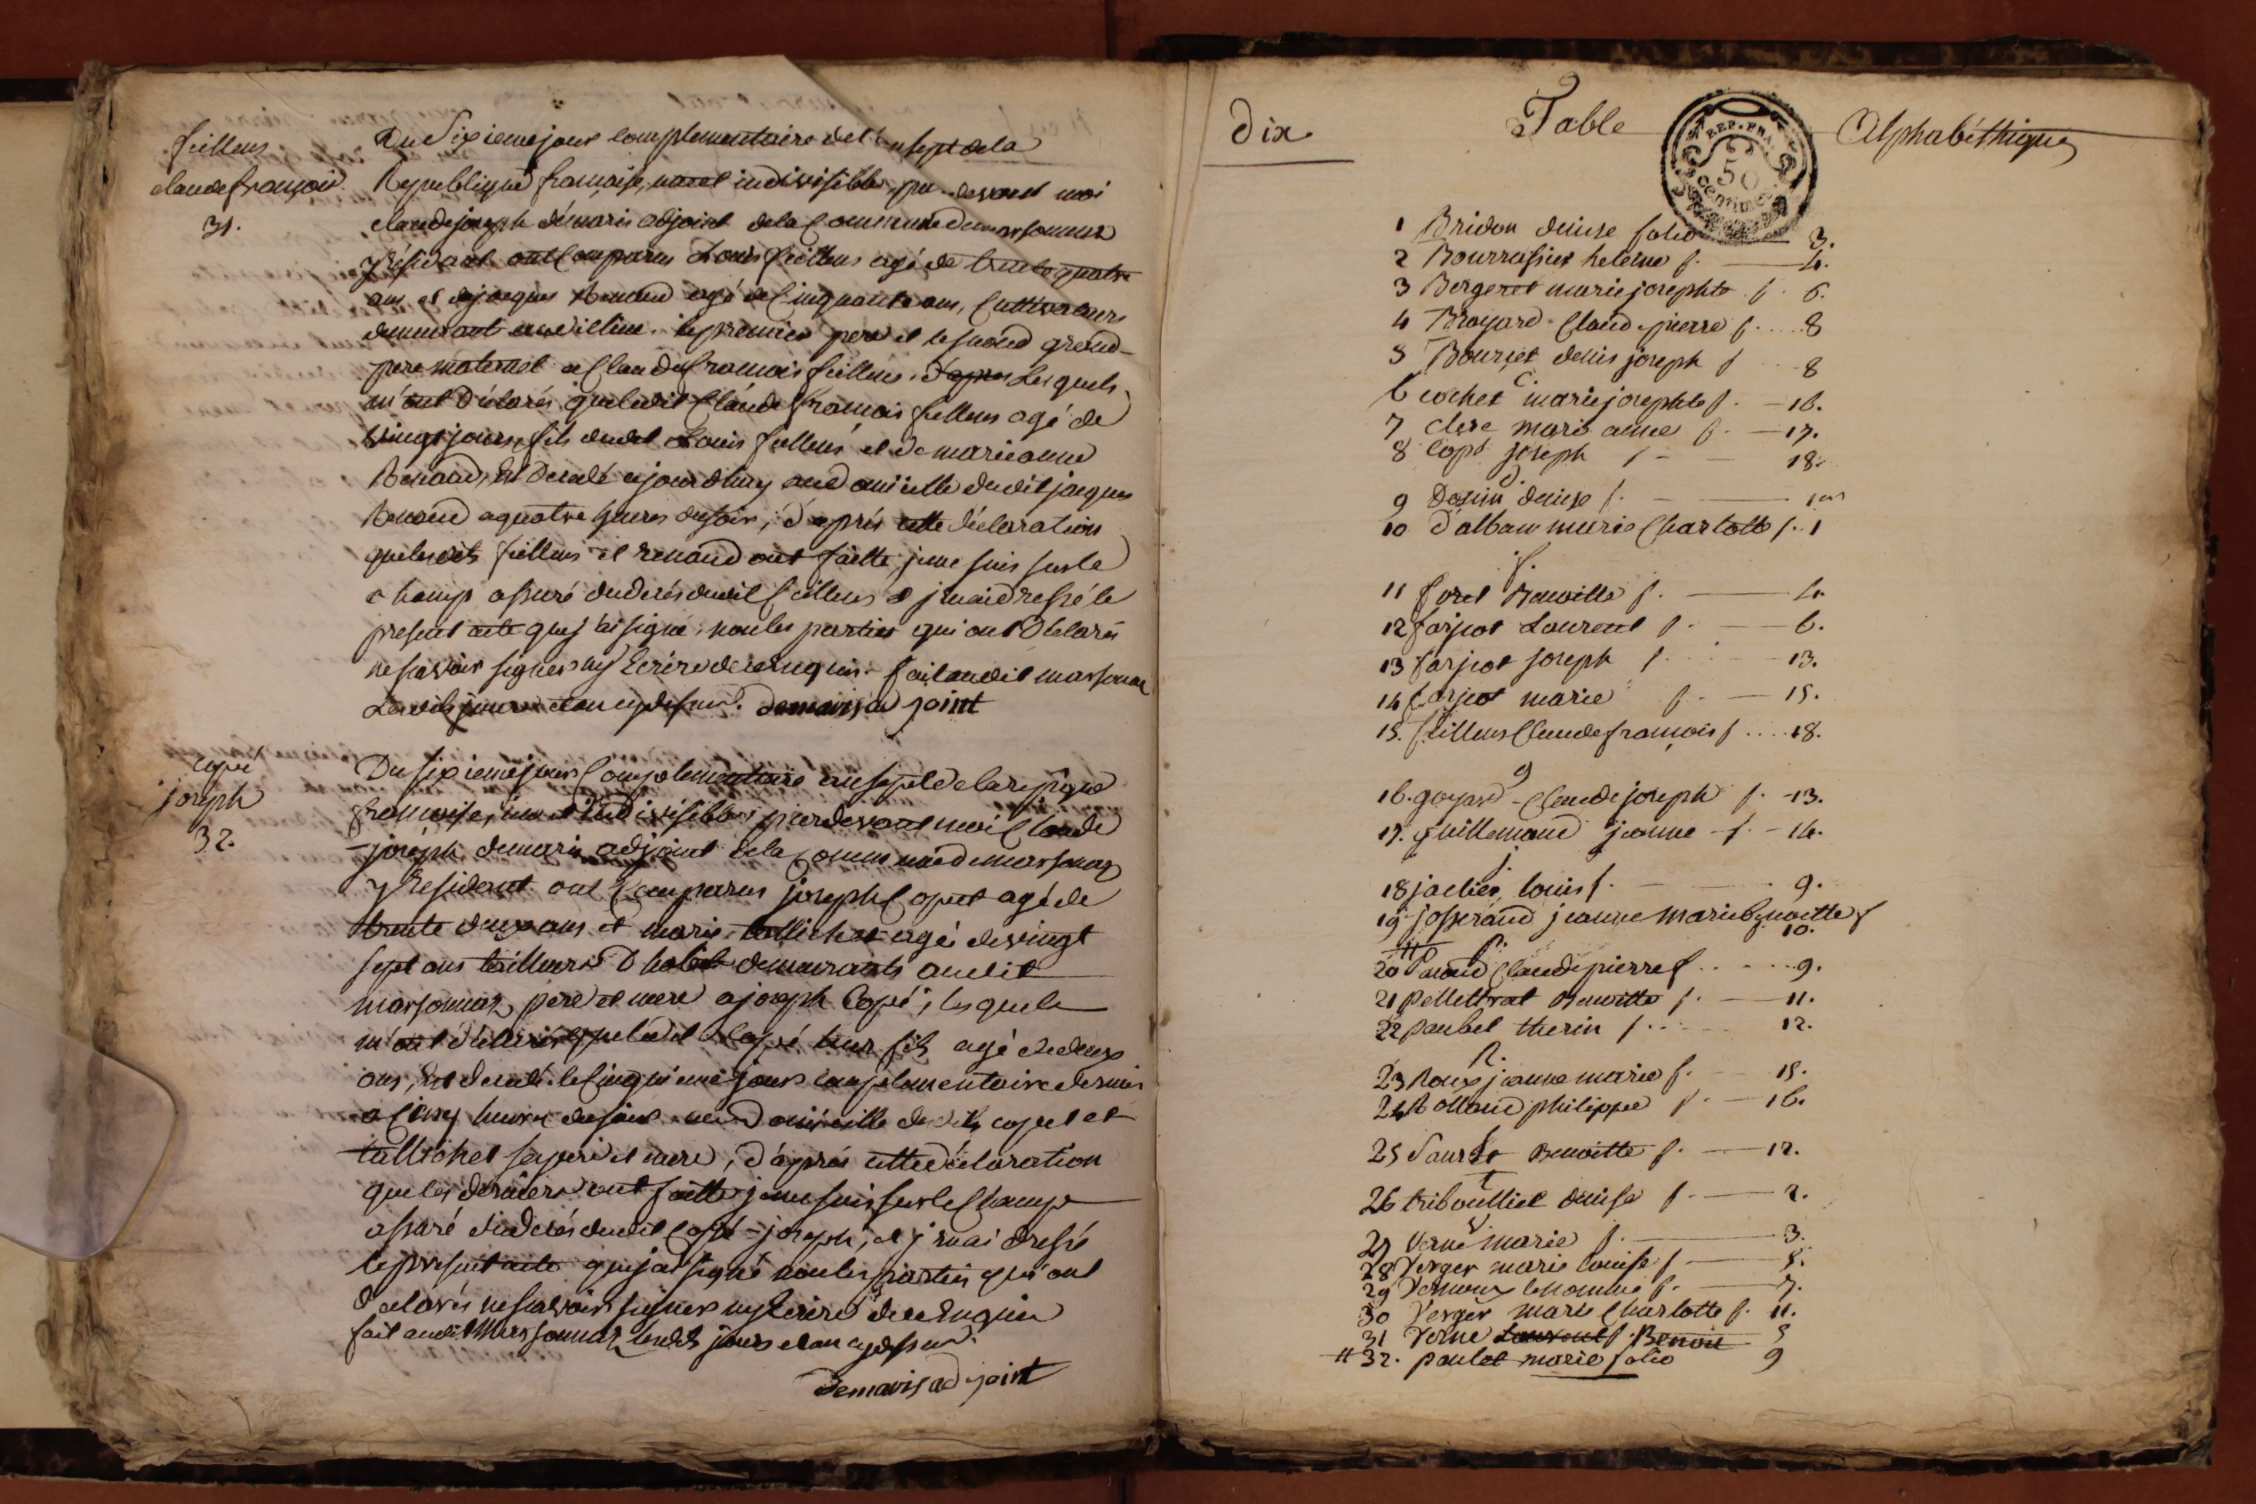 fillens
claude françois
31.
Du Sixieme jour complementaire de l'an sept de la
Republique francaise, une et indivisible, par devant moi
claude joseph démaris adjoint de la Commune de marsonnaz
y résidant ont Comparus Louis fillens agé de trente quatre
ans et de jacques Renaud agé de Cinquante ans, Cultivateurs
demeurant le premier pere et le second grand
pere maternel a Claude francois fillens. Lesquels
m'ont Déclarés que ledit Claude francois fillens agé de
vingt jours, fils dudit Louis fillens et de marie anne
Renaud, Est Decedé ajourdhuy audomicille dudit jacques
Renaud a quatre heures du soir, d'aprés cette déclaration
que lesdits fillens et renaud ont faitte, je me suis sur le
champ assuré du décés dudit fillens et j'en ai dressé le
present acte que j'ai signé, non les parties qui ont Declarés
ne scavoir signer ny Ecrire de ce enquis. fait audit marsonnaz
Lesdits jour et an cy dessus. Demaris adjoint
copé
joseph
32.
Du sixieme jour Complementaire an sept de la repque
francaise, une et indivisible, pardevant moi Claude
joseph demaris adjoint de la Commune de marsonnaz
y Residant ont Comparus joseph Copet agé de
trente deux ans et marie tallichet agé de vingt
sept ans tailleurs D'habit demeurants audit
marsonnaz, pere et mere a joseph Copé, lesquels
m'ont déclarés que ledit Copé leur fils agé de deux
ans, Est decedé le Cinquieme jour complementaire dernier
a Cinq heures du soir au domicille desdits copet et
tallichet ses pere et mere, d'aprés cette déclaration
que les derniers ont faitte je me suis sur le Champ
assuré du décés dudit Copé joseph, et j'en ai dressé
le present acte que j'ai signé non les parties qui ont
Declarés ne scavoir signer ny Ecrire de ce Enquis
fait audit Marsonnaz lesdits jours et an cy dessus.
Demaris adjoint
Dix Table Alphabéthique
REP. FRA.
50
centimes
1 Bridon denise folio 3.
2 Bourrassier helene f. 4.
3 Bergeret marie josephte f. 6.
4 Broyard Claude pierre f. 8
5 Bourcet denis joseph f 8
C.
6 cochet marie josephte f. 16.
7 Clerc marie anne f. 17.
8 Copé joseph f 18.
D
9 denise f. 1er
10 D'alban marie Charlotte f. 1
f.
11 foret Benoitte f. 4
12 farjeot Laurent f. 6.
13 farjeot joseph f. 13.
14 farjeot marie f. 15.
15. fillens Claude francois f 18.
g
16. goyard Claude joseph f. 13.
17. guillemaud jeanne f. 14.
j
18 jaclier louis f. 9.
19 josserand jeanne marie benoitte f
10.
p.
20 Panud Claude pierre f 9.
21 pelletrat Benoitte f. 11.
22 paubel therin f. 12.
R.
23 Roux jeanne marie f. 15.
24 Rolland philippe f. 16.
S
25 Benoitte f. 12.
t
26 triboulliet denise f. 2.
V
27 Verne marie f. 3.
28 Verger marie louise f 5.
29 Vernoux f. 7.
30 Verger marie Charlotte f. 11.
31 Verne Laurent f. Benoit 5
# 32. paulet marie folio 9